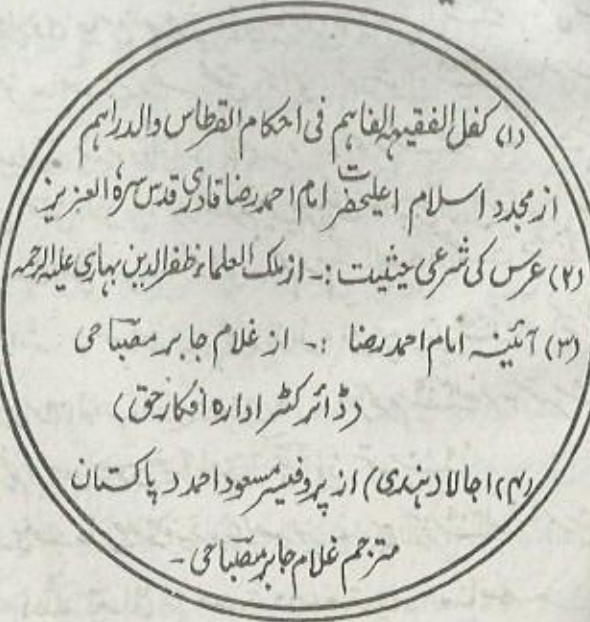 (۱) کفل الفقیہ الفاہم فی احکام القرطاس والدراہم
از مجدد اسلام اعلیحضرت امام احمد رضا قادری قدس سرہٗ العزیز
(۲) عرس کی شرعی حیثیت :- از ملک العلماء ظفر الدین بہاری علیہ الرحمہ
(۳) آئینہ امام احمد رضا :- از غلام جابر مصباحی
(ڈائرکٹر ادارہ افکار حق)
(۴) اجالا (ہندی) از پروفیسر مسعود احمد (پاکستان
مترجم غلام جابر مصباحی -